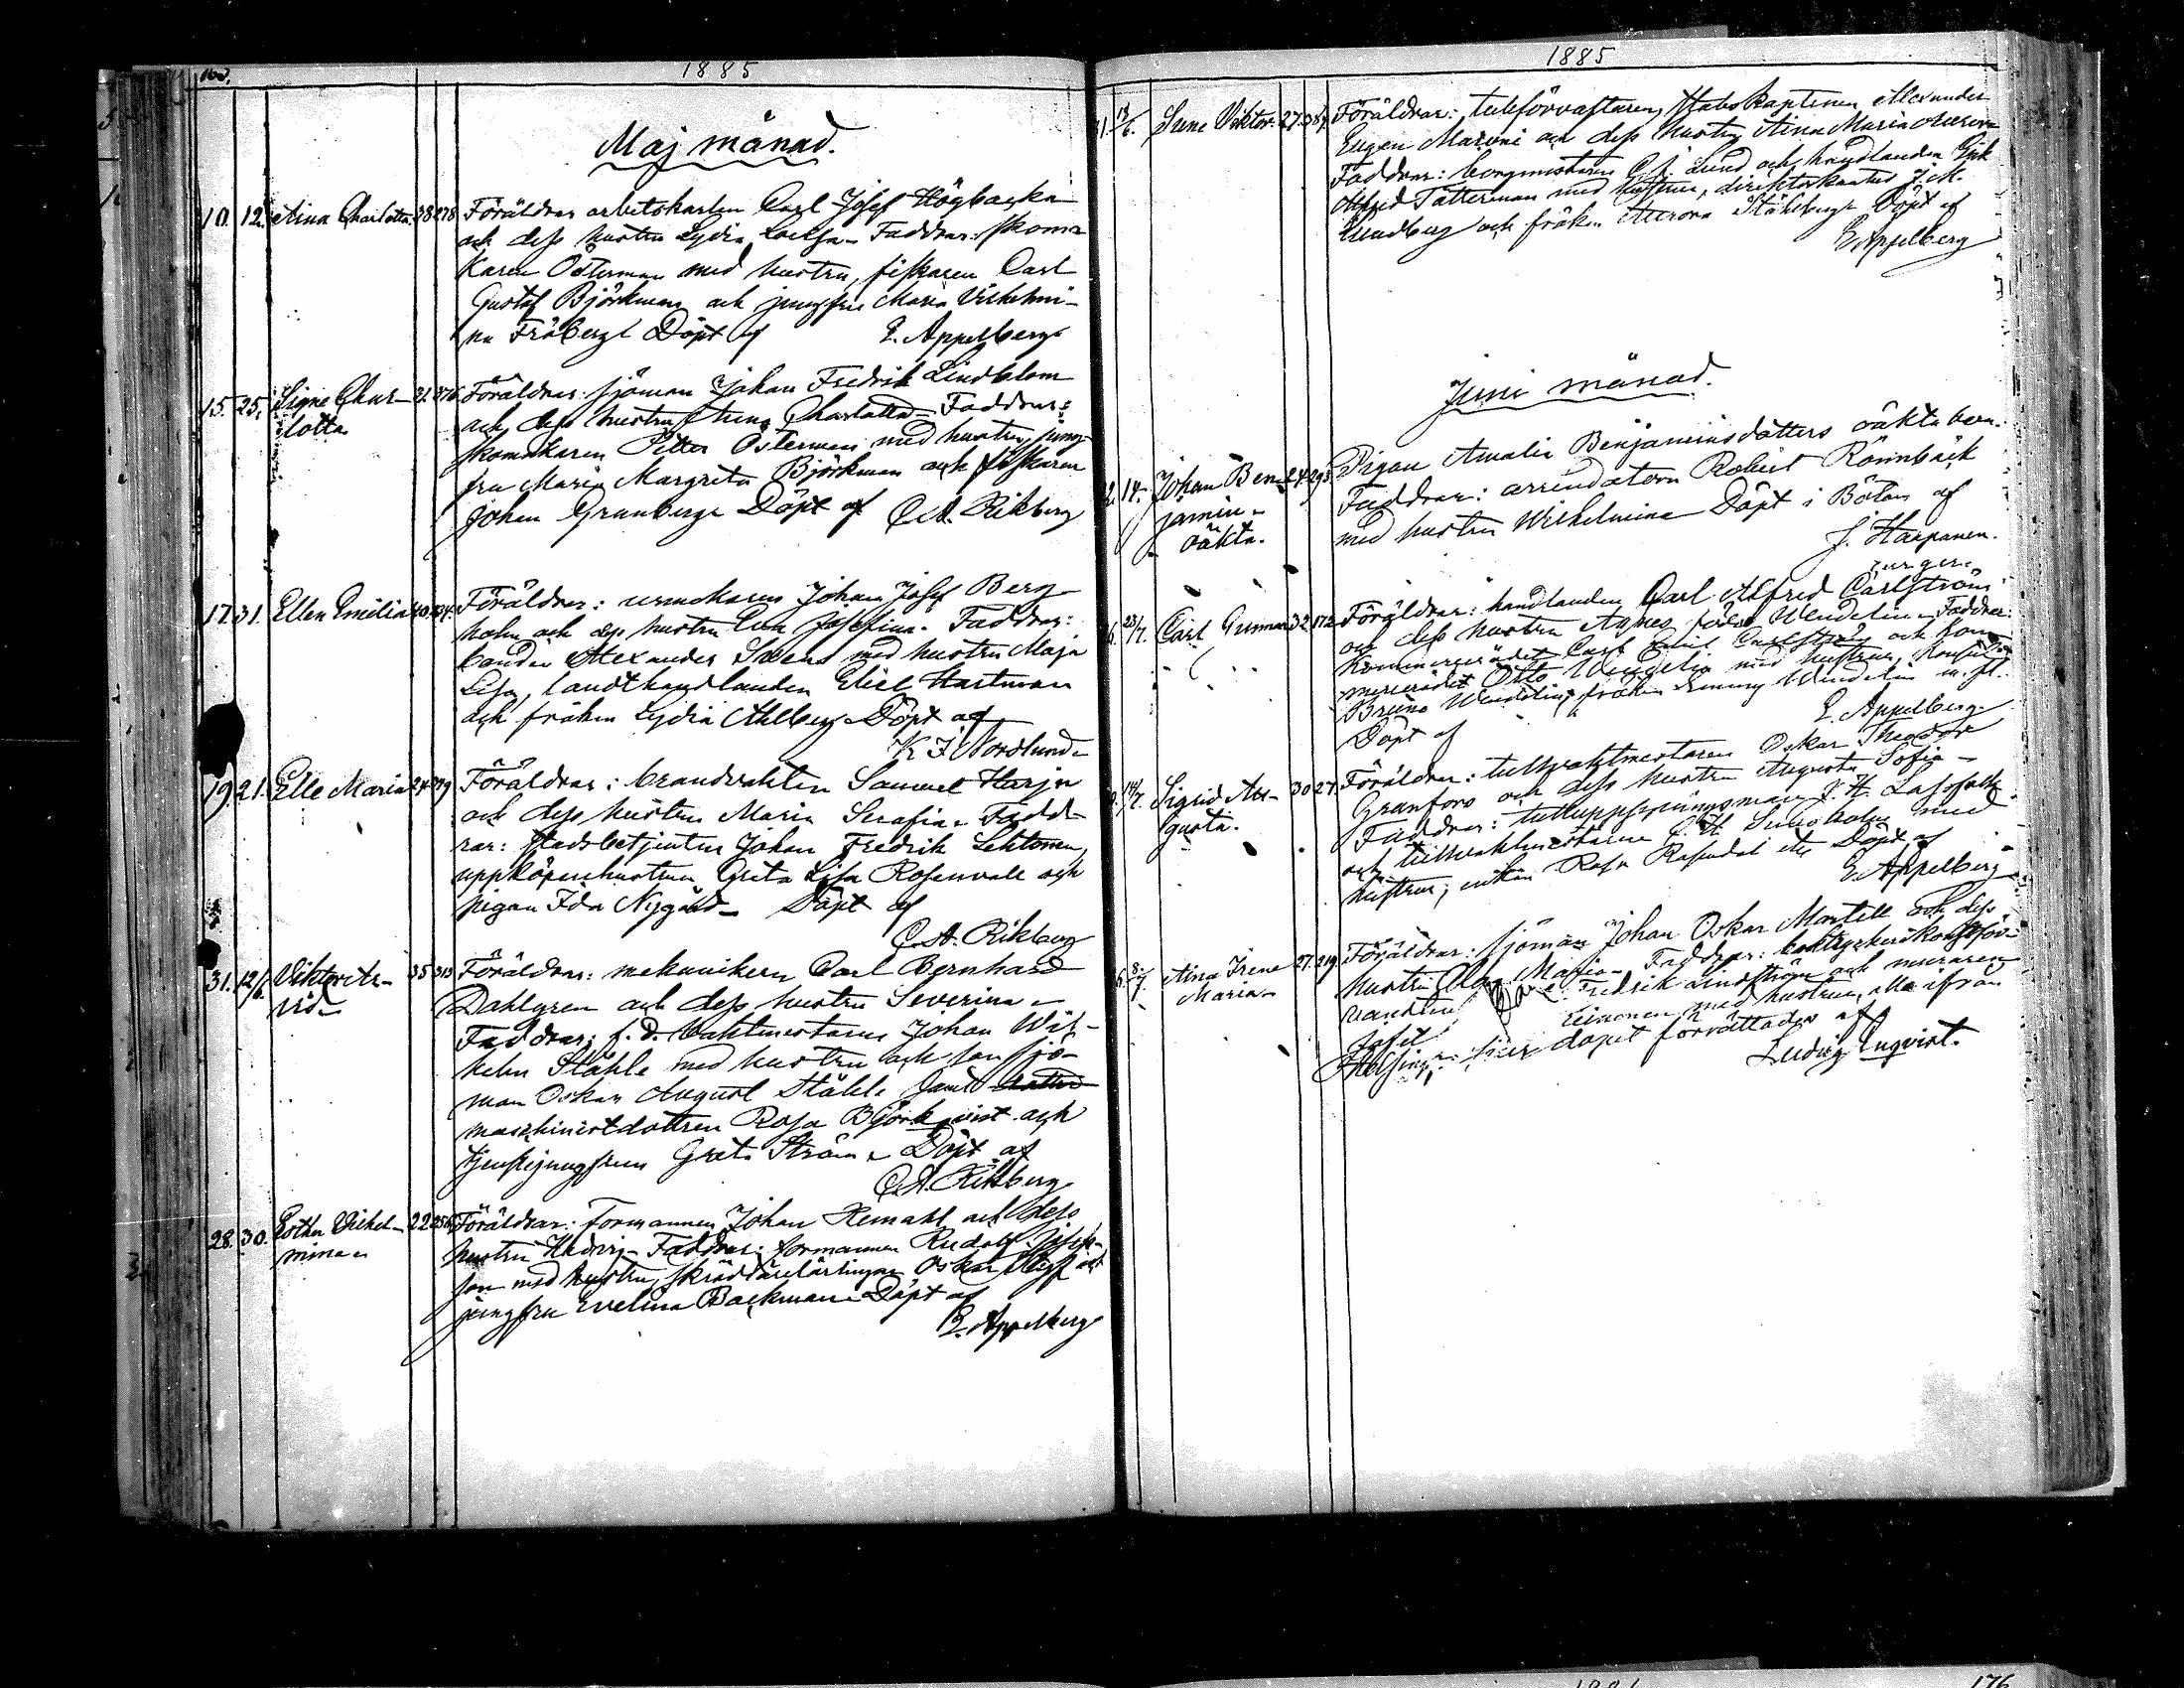 1885
Maj månad.
10. 12. Aina Charlotta. 28 278 Föräldrar arbetskarlen Carl Josef Högbacka
och dess hustru Lydia Lovisa – Faddrar: skoma-
karen Österman med hustru, fiskaren Carl
Gustaf Björkman och jungfru Maria Vilhelmi-
na Fröberg. Döpt af E. Appelberg
15. 25. Signe Char- 21. 276 Föräldrar: sjöman Johan Fredrik Lindblom
lotta och dess hustru Anna Charlotta – Faddrar:
skomakaren Petter Österman med hustru, jung-
fru Maria Margreta Björkman och fiskaren
Johan Granberg. Döpt af C. A. Rikberg
17. 31. Ellen Emilia 40 Föräldrar: urmakaren Johan Josef Berg-
holm och dess hustru Eva Josefina. Faddrar:
bonden Alexander Svens med hustru Maja
Lisa, landthandlanden Eliel Hartman
och fröken Lydia Ahlberg. Döpt af
K J Nordlund
19. 21. Elle Maria 24 279 Föräldrar: brandvakten Samuel Harju
och dess hustru Maria Serafia. Fadd-
rar: stadsbetjenten Johan Fredrik Lehtonen,
uppköparehustrun Greta Lisa Rosenvall och
pigan Ida Nygård – Döpt af
C. A. Rikberg
31. 12/6. Viktor Ar- 35 313 Föräldrar: mekanikern Carl Bernhard
vid – Dahlgren och dess hustru Severina –
Faddrar: f. d. vaktmestaren Johan Wil-
helm Ståhle med hustru och son sjö-
man Oskar August Ståhle samt
maschinistdottren Rosa Björkqvist och
tjenstejungfrun Greta Ström. Döpt af
C. A. Rikberg
28. 30. Ester Vilhel- 22 Föräldrar: formannen Johan Remahl och dess
mina hustru Hedvig – Faddrar: formannen Rudolf Josefs-
son med hustru, skräddarelärlingen Oskar och
jungfru Evelina Backman. Döpt af
E. Appelberg
1885
31. 13/6. Sune Viktor. 27. Föräldrar: tullförvaltaren, Stabskaptenen Alexander
Eugen Maroni och dess hustru Aina Maria Aurora
Faddrar: borgmestaren Lund och handlanden Erik
Alfred Tätterman med hustrur,
Lundberg och fröken Aurora Ståhlberg. Döpt af
E. Appelberg
Juni månad.
2. 14. Johan Ben- 24 293 Pigan Amalia Benjaminsdotters oäkta barn.
jamin – Faddrar: arrendatorn Robert Rönnbäck
oäkta. med hustru Wilhelmina Döpt i Bötom af
J. Haapanen.
6. 23/7. Carl Gunnar 32 172 Föräldrar: handlanden Carl Alfred Carlström
och dess hustru Agnes född Wendelin – Faddrar:
Kommerserådet Carl Emil Carlström och Kom-
merserådet Otto Wendelin med hustrur, Konsul
Bruno Wendelin, fröken Wendelin m. fl.
Döpt af E. Appelberg
14/7. Sigrid Au- 30 27 Föräldrar: tullvaktmestaren Oskar Theodor
gusta. Granfors och dess hustru Augusta Sofia –
Faddrar: tulluppsyningsman
och tullvaktmestarne Sundholm med
hustrur, enkan Rosa Rosendal etc Döpt af
E. Appelberg
8/7 Aina Irene 27. 219 Föräldrar: sjöman Johan Oskar Martell och dess
Maria – hustru Olga Maria – Faddrar:
Fredrik Lindström och muraren
Josef Leinonen med hustrur, alla ifrån
Helsing dopet förrättades af
Ludvig Enqvist.
176